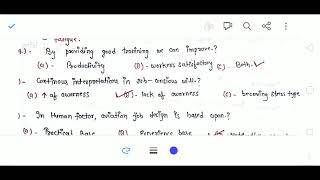 fatigue.
4.) - By providing good training we can improve.?
(A) - Productivity (B) - workers satisfactory (C) - Both
) - Continous interpretations in job-
(A) ↑ of awarness (B) - lack of awarness (C) - becoming stress type
) - In Human factor, aviation job design is based upon.?
(A) - Practical base (B) - Experience base